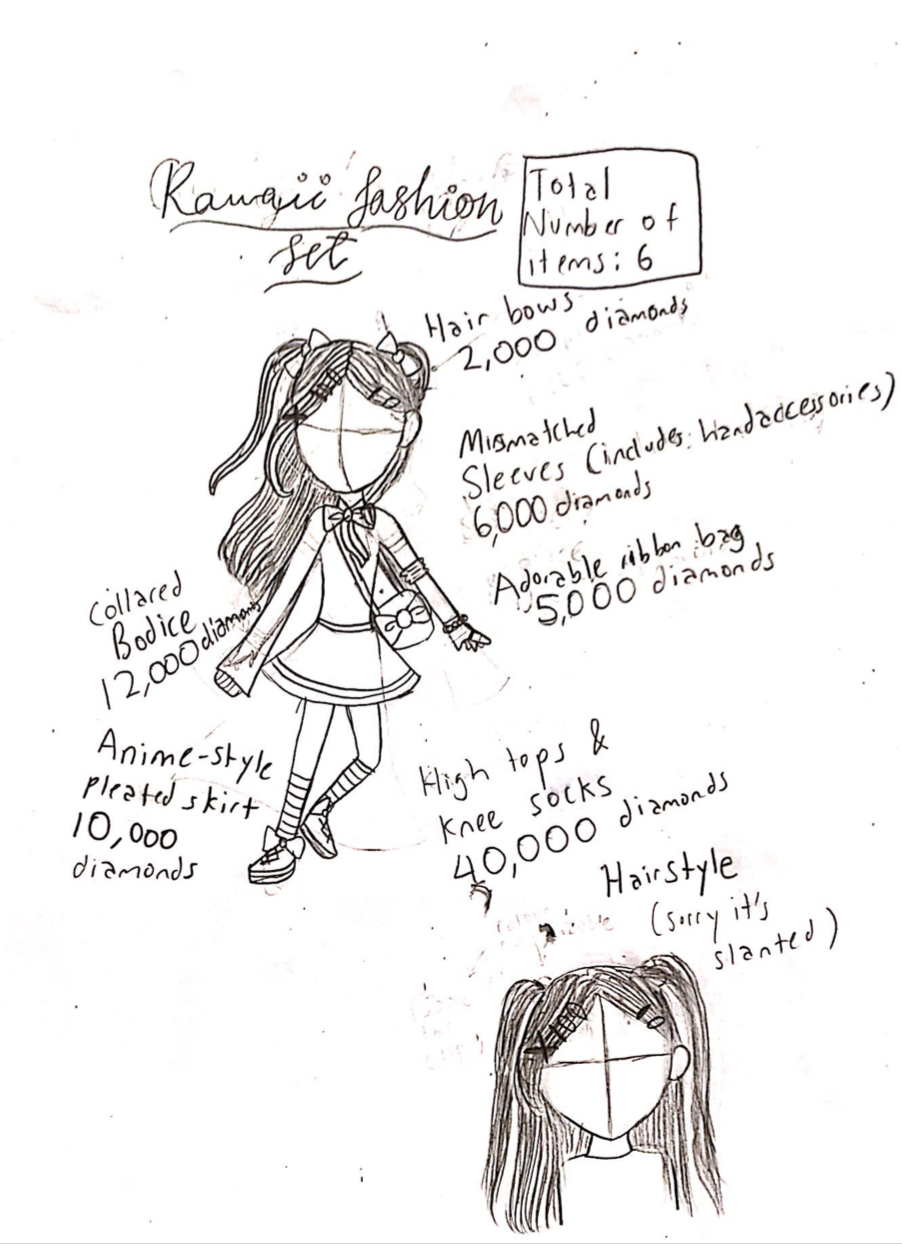 Kawaii fashion
set
Total
Number of
items: 6
Hair bows
2,000 diamonds
Mismatched
Sleeves (includes: Handaccessories)
6,000 diamonds
Adorable ribbon bag
5,000 diamonds
Collared
Bodice
12,000 diamonds
Anime-style
pleated skirt
10,000
diamonds
High tops &
knee socks
40,000 diamonds
Hairstyle
(sorry it's
slanted)